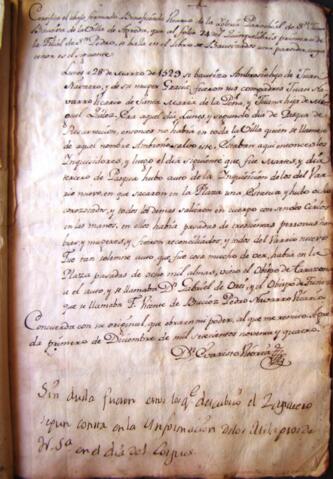 Certifico el abajo firmado Beneficiado Vicario de la Iglesia Parroquial de Sta.
Barbara de la Villa de que al folio 24 del primero de
la Felig. de Sn. Pedro, se halla en el Libro de Bautizados una partida cuyo
tenor es el siguiente
Lunes à 28 de Marzo de 1529 se bautizo Ambrosio hijo de Juan
Navarro, y de su muger Gracia, fueron sus compadres Juan Na-
varro Vicario de Santa Maria de la Peña, y Juana hija de Mi-
guel Lopez. Era aquel dia Lunes, y segundo dia de Pasqua de
Resurreccion, entonces no habia en toda la Villa quien se llamase
de aquel nombre Ambrosio salvo este. Estaban aqui entonces los
Inquisidores, y luego el dia siguiente que fue Martes, y dia
tercero de Pasqua hubo auto de la Inquisicion de los del Var-
rio nuevo, en que sacaron en la Plaza una Estatua, y hubo dos
y todos los demas salieron en cuerpo con sendos Cirios
en las manos, en ellos habia pasadas de trescientas personas hom-
bres y mugeres, y fueron reconciliados, y todos del Varrio nuevo.
Fue tan solemne auto que fue cosa mucho de ver, habia en la
Plaza pasadas de ocho mil almas, vino el Obispo de Tarazona
a el auto, y se llamaba Dn. Gabriel de Orti, y el Obispo de
que se llamaba F. Vicente de Pedro Navarro Vicario.
Concuerda con su original, que obra en mi poder, al que me remito. A
dia primero de Diciembre de mil setecientos noventa y quatro.
Dn. Evaristo
Sin duda fueron estos los q.e descubrio el Zapatero
segun consta en la Informacion de los Milagros de
N. Sa en el dia del Corpus.